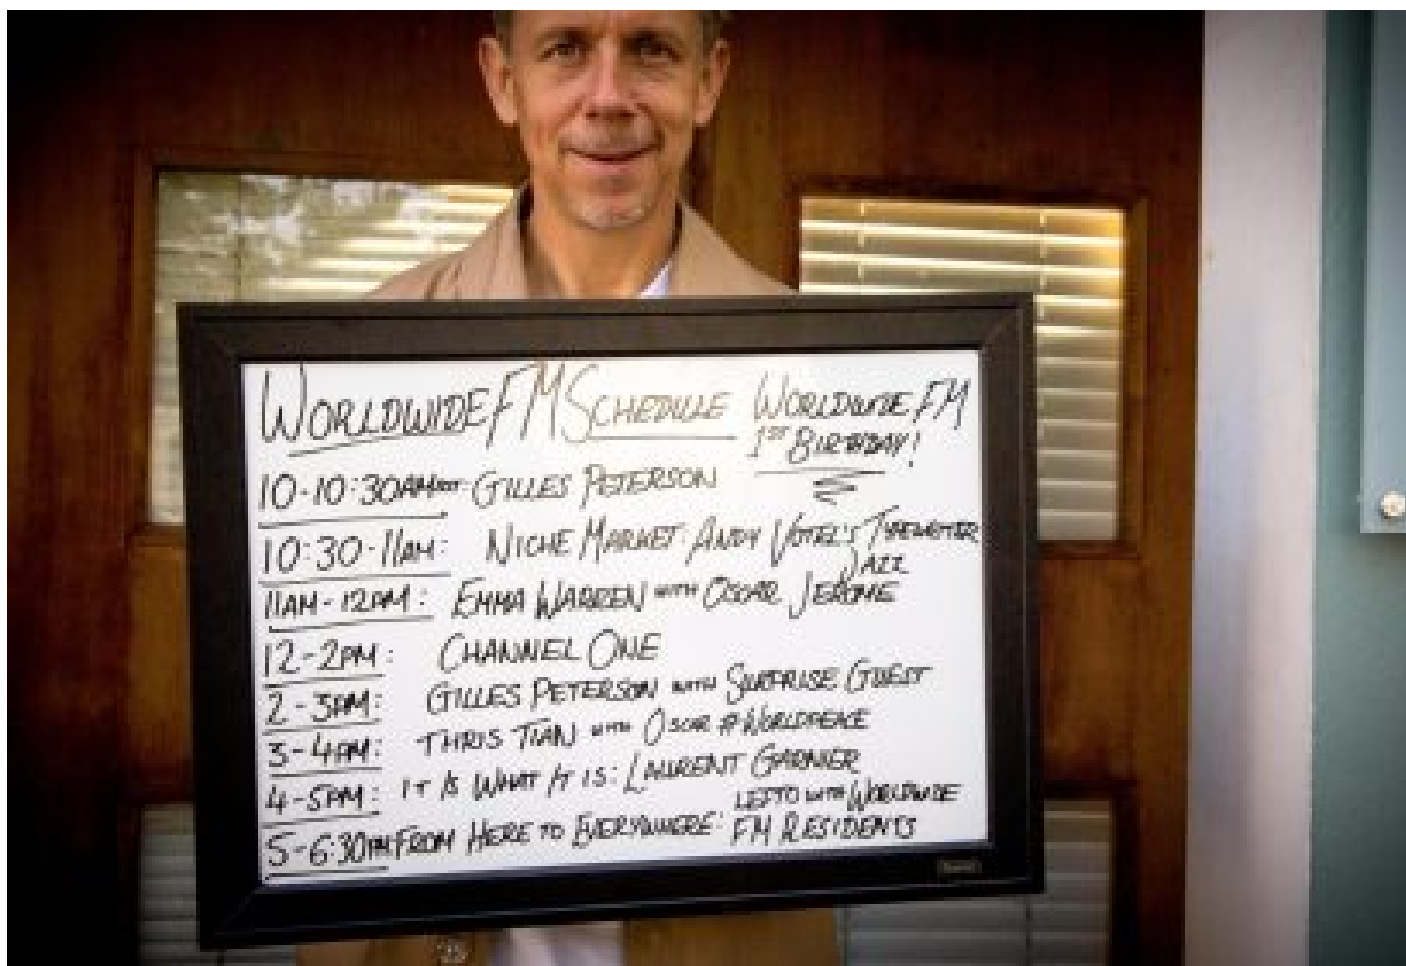 WORLDWIDE FM SCHEDULE WORLDWIDE FM
1ST BIRTHDAY!
10-10:30AM GILLES PETERSON
10:30-11AM: NICHE MARKET: ANDY VOTEL'S TYPEWRITER
JAZZ
11AM-12PM: EMMA WARREN WITH OSCAR JEROME
12-2PM: CHANNEL ONE
2-3PM: GILLES PETERSON WITH SURPRISE GUEST
3-4PM: THRIS TIAN WITH OSCAR #WORLDPEACE
4-5PM: IT IS WHAT IT IS: LAURENT GARNIER
5-6:30PM FROM HERE TO EVERYWHERE: WITH WORLDWIDE
FM RESIDENTS